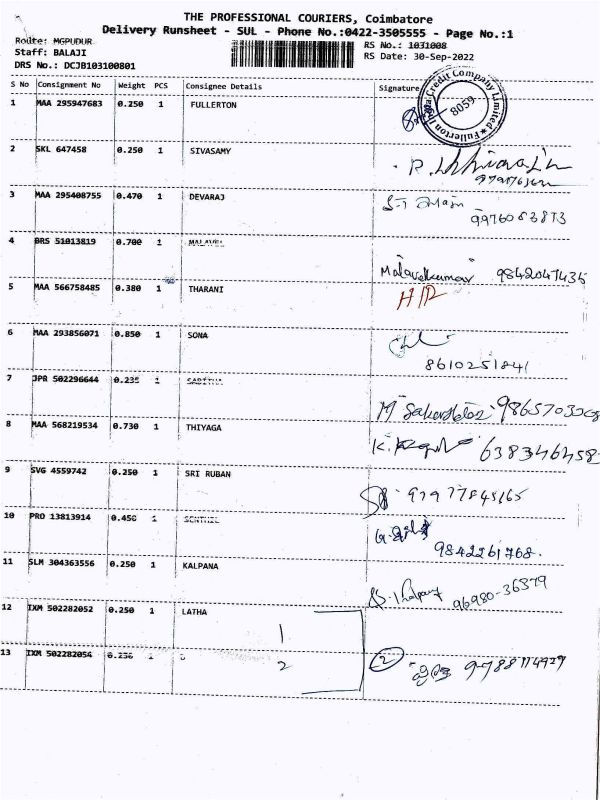 THE PROFESSIONAL COURIERS, Coimbatore
Delivery Runsheet - SUL - Phone No.:0422-3505555 - Page No.:1
Route: MGPUDUR
RS No.: 1031008
Staff: BALAJI
RS Date: 30-Sep-2022
DRS No.: DCJB103100801
S No Consignment No Weight PCS Consignee Details Signature
Fullerton India Credit Company Limited
8059
1 MAA 295947683 0.250 1 FULLERTON
2 SKL 647458 0.250 1 SIVASAMY
3 MAA 295408755 0.470 1 DEVARAJ
9976083873
4 BRS 51013819 0.700 1
Malavelkumar 9842047435
5 MAA 566758485 0.380 1 THARANI
H/R
6 MAA 293856071 0.850 1 SONA
8610251841
7 JPR 502296644 0.235 1 SABITHA
M
8 MAA 568219534 0.730 1 THIYAGA
9 SVG 4559742 0.250 1 SRI RUBAN
10 PRO 13813914 0.450 1 SENTHIL
9842261768.
11 SLM 304363556 0.250 1 KALPANA
96980-36379
12 IXM 502282052 0.250 1 LATHA
1
13 IXM 502282054 0.250 1
2
2